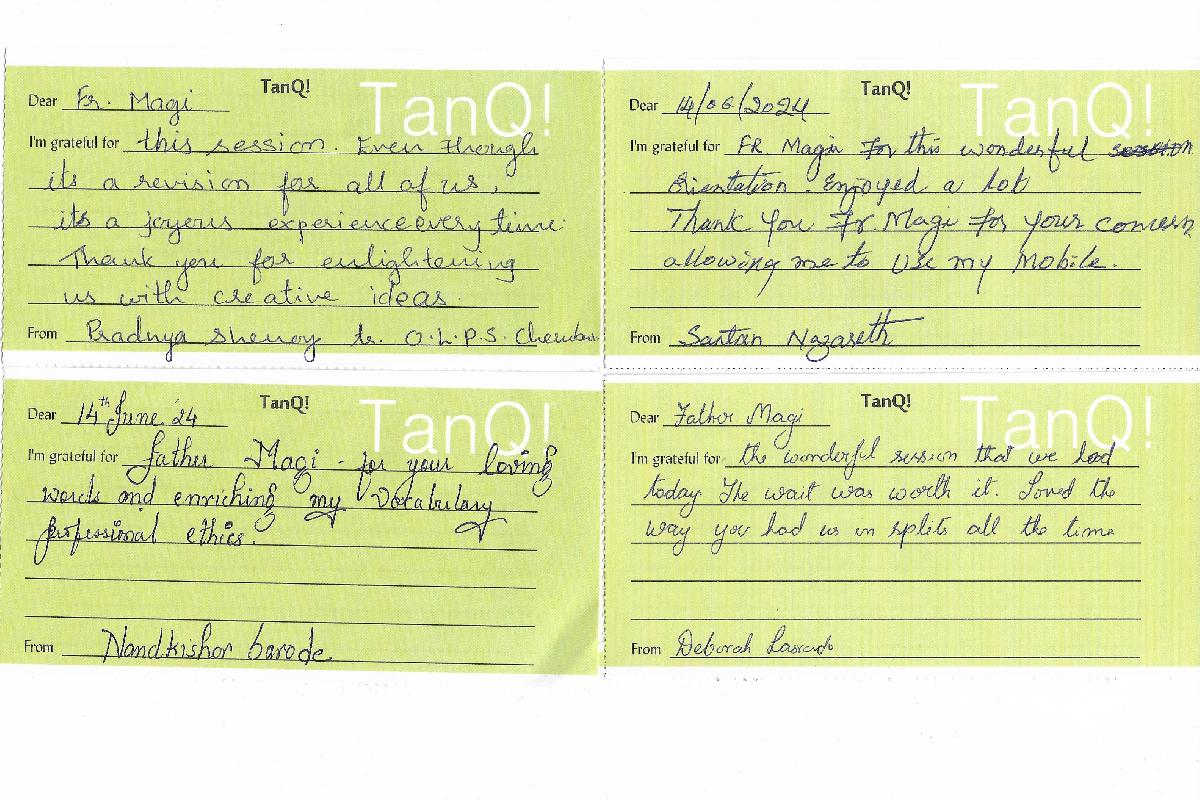 TanQ!
TanQ!
Dear Fr. Magi
I'm grateful for this session. Even though
its a revision for all of us,
its a joyerus experience every time.
Thank you for enlightening
us with creative ideas.
From Pradnya Shenoy tr. O.L.P.S. Chembur
TanQ!
TanQ!
Dear 14/06/2024
I'm grateful for FR Magi For this wonderful session
Orientation. Enjoyed a lot
Thank You Fr. Magi For your concern
allowing me to Use my Mobile.
From Santan Nazareth
TanQ!
TanQ!
Dear 14th June '24
I'm grateful for father Magi - for your loving
words and enriching my Vocabulary
professional ethics.
From Nandkishor barode
TanQ!
TanQ!
Dear Father Magi
I'm grateful for the wonderful session that we had
today The wait was worth it. Loved the
way you had us in splits all the time
From Deborah Lasrado